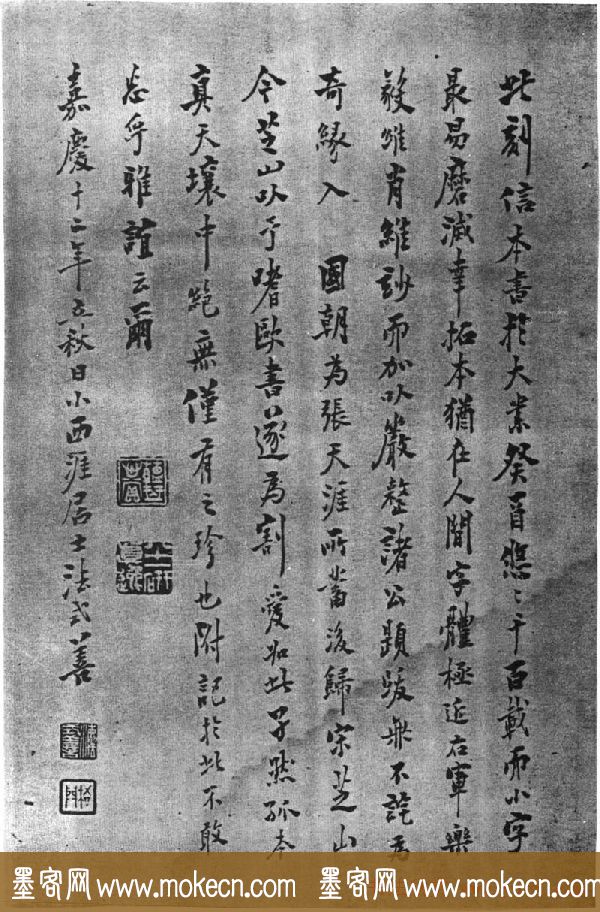 此刻信本書於大業癸酉悠〻千百載而小字
最易磨滅幸拓本猶在人間字體極近右軍樂
毅雖肖維妙而加以嚴整諸公題跋無不詫為
奇緣入 國朝為張天涯所蓄後歸宋芝山
今芝山以予嗜歐書遂為割愛如此孑然孤本
真天壤中絕無僅有之珍也附記於此不敢
忘乎雅誼云爾
嘉慶十二年立秋日小西涯居士法式善
墨客网www.mokecn.com 墨客网www.mokecn.com